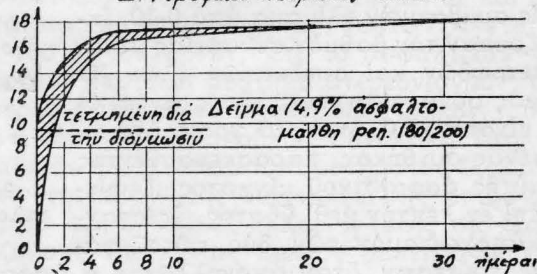 18
16
14
12
10
8
6
4
2
0
τετμημένη διά
τὴν διόγκωσιν
Δεῖγμα 14,9% ἀσφαλτο-
μάλθη pen. (80/200)
0 2 4 6 8 10 20 30 ἡμέραι